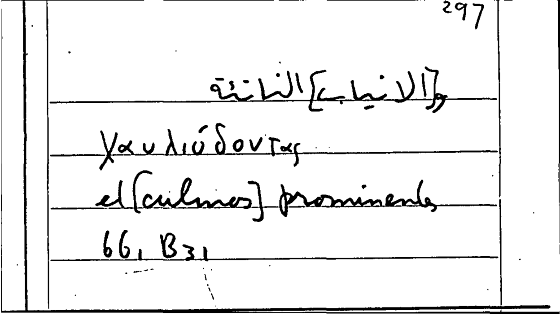 297
و[الانياب] الناتئة
χαυλιόδοντας
et [culmos] prominentes
66, B31